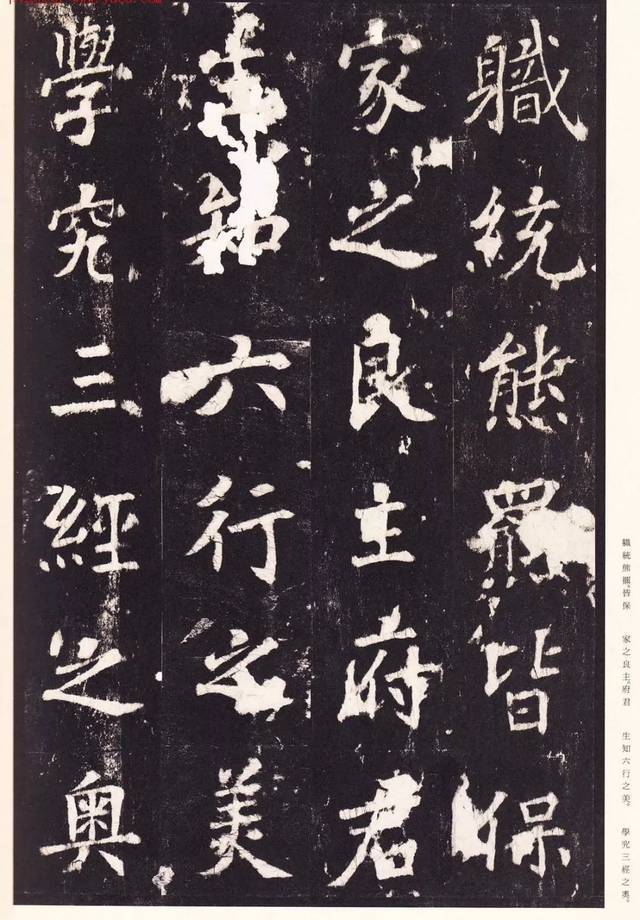 軄統熊羆皆保
家之良主府君
生知六行之美
學究三經之奥
職統熊羆。皆保　家之良主。府君　生知六行之美。　學究三經之奥。